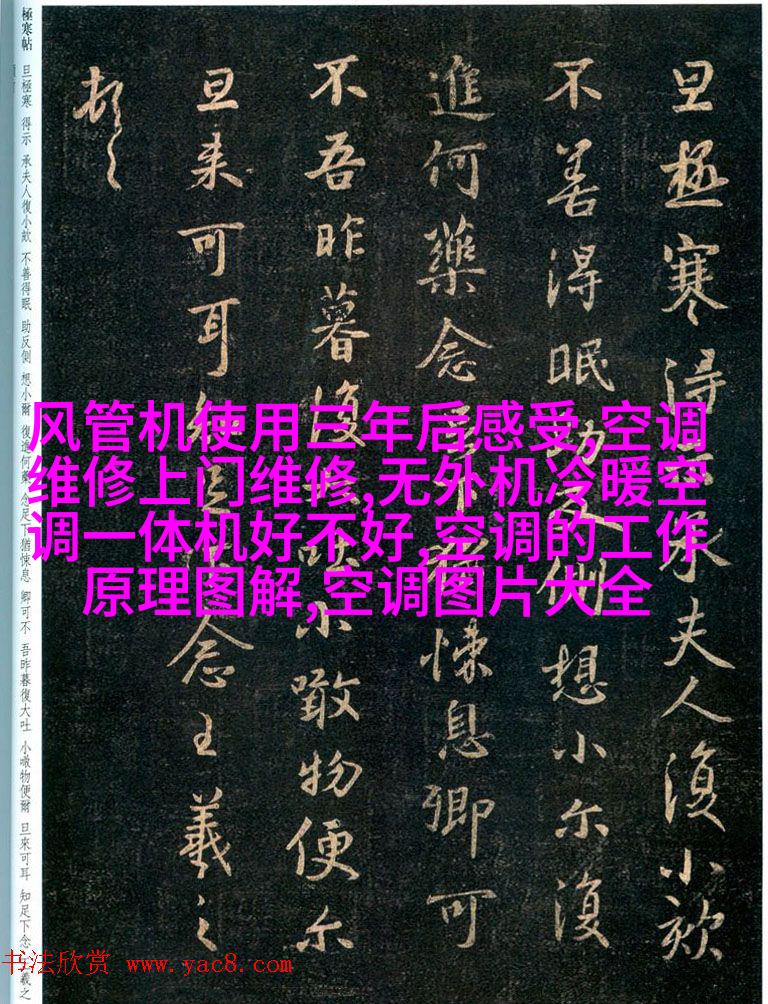 旦極寒得示承夫人復小欬
不善得眠助反側想小尔復
進何藥念足下猶悚息卿可
不吾昨暮復大吐小噉物便尔
旦来可耳知足下念王羲之
頓首
極寒帖 旦極寒 得示 承夫人復小欬 不善得眠 助反側 想小爾 復進何藥 念足下猶悚息 卿可不 吾昨暮復大吐 小噉物便爾 旦來可耳 知足下念 王羲之
风管机使用三年后感受,空调
维修上门维修,无外机冷暖空
调一体机好不好,空调的工作
原理图解,空调图片大全
书法欣赏 www.yac8.com